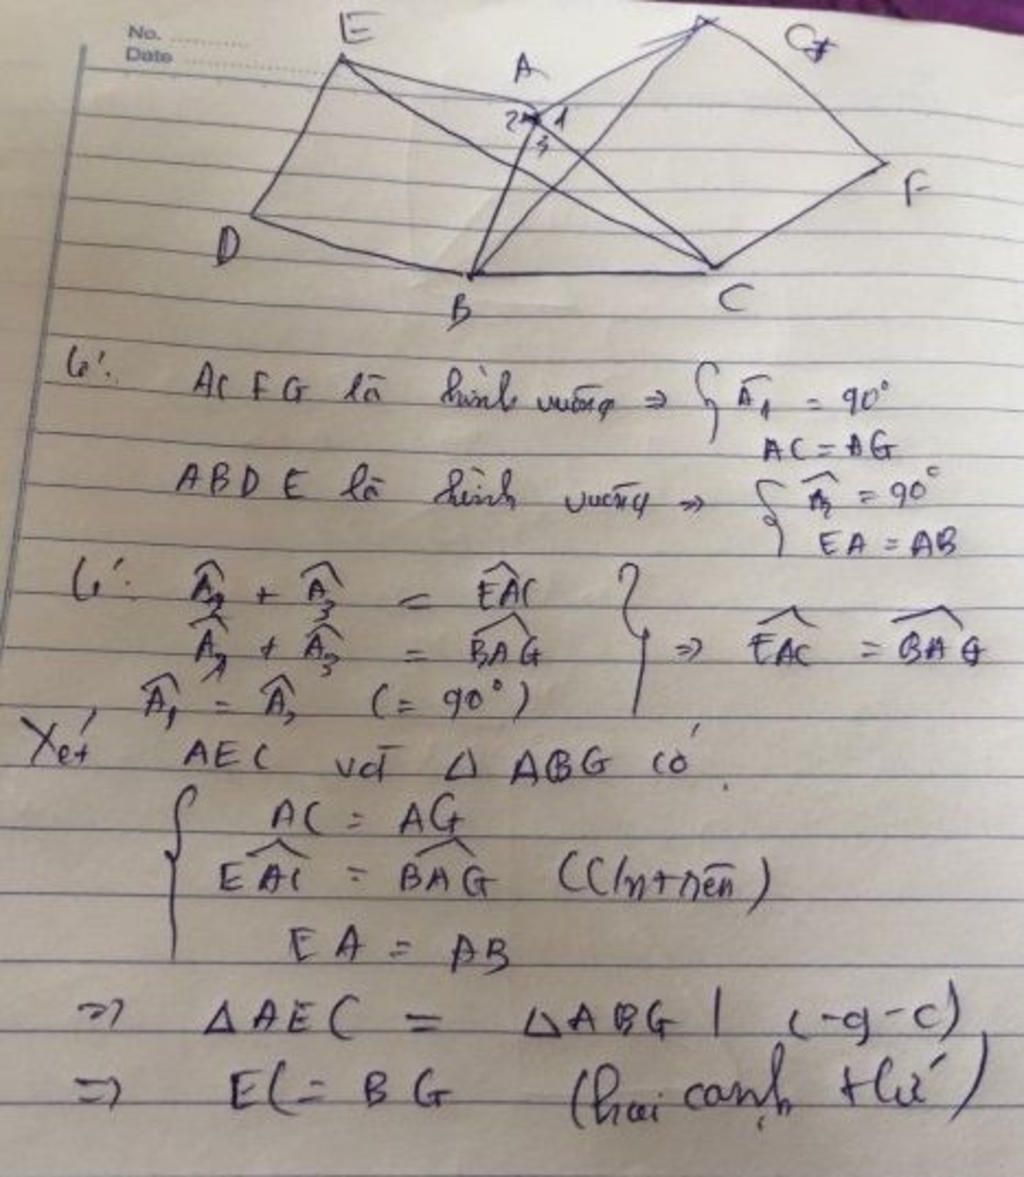 No.
Date
E
A
G
2 1
3
F
D
B
C
Có:
ACFG là hình vuông => { Â1 = 90°
AC = AG
ABDE là hình vuông => { Â2 = 90°
EA = AB
Có: Â2 + Â3 = EAC
Â1 + Â3 = BAG } => EAC = BAG
Â1 = Â2 (= 90°)
Xét AEC với Δ ABG có
AC = AG
EAC = BAG (C/m trên)
EA = AB
=> ΔAEC = ΔABG (-g-c)
=> EC = BG (hai cạnh tứ)